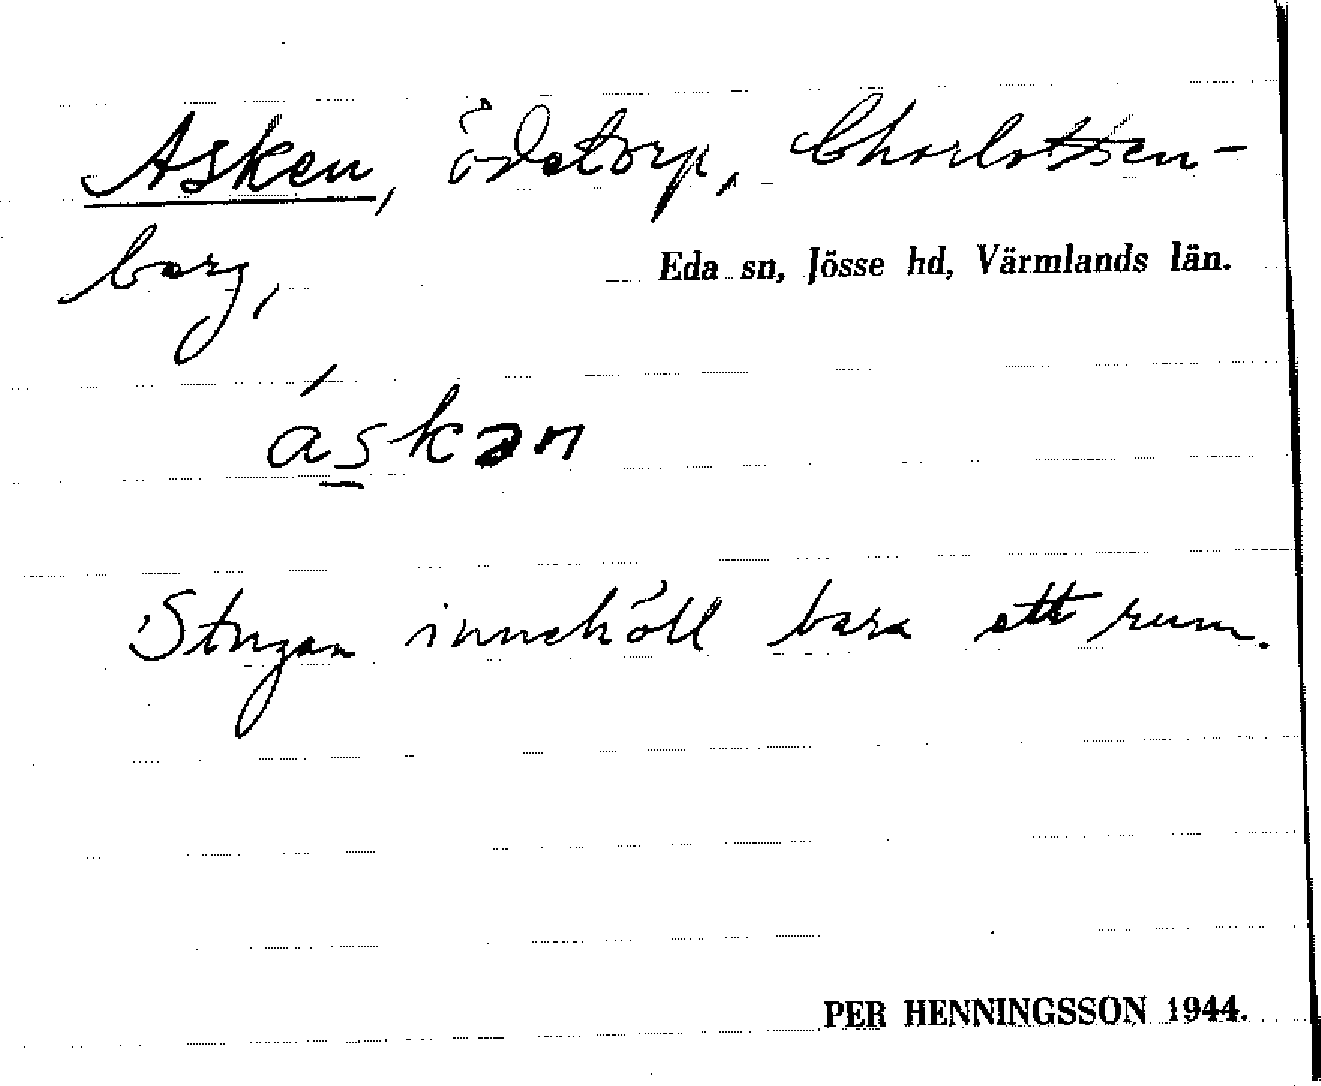 Asken, ödetorp, Charlotten-
berg,
Eda sn, Jösse hd, Värmlands län.
áskən
Stugan innehöll bara ett rum.
PER HENNINGSSON 1944.